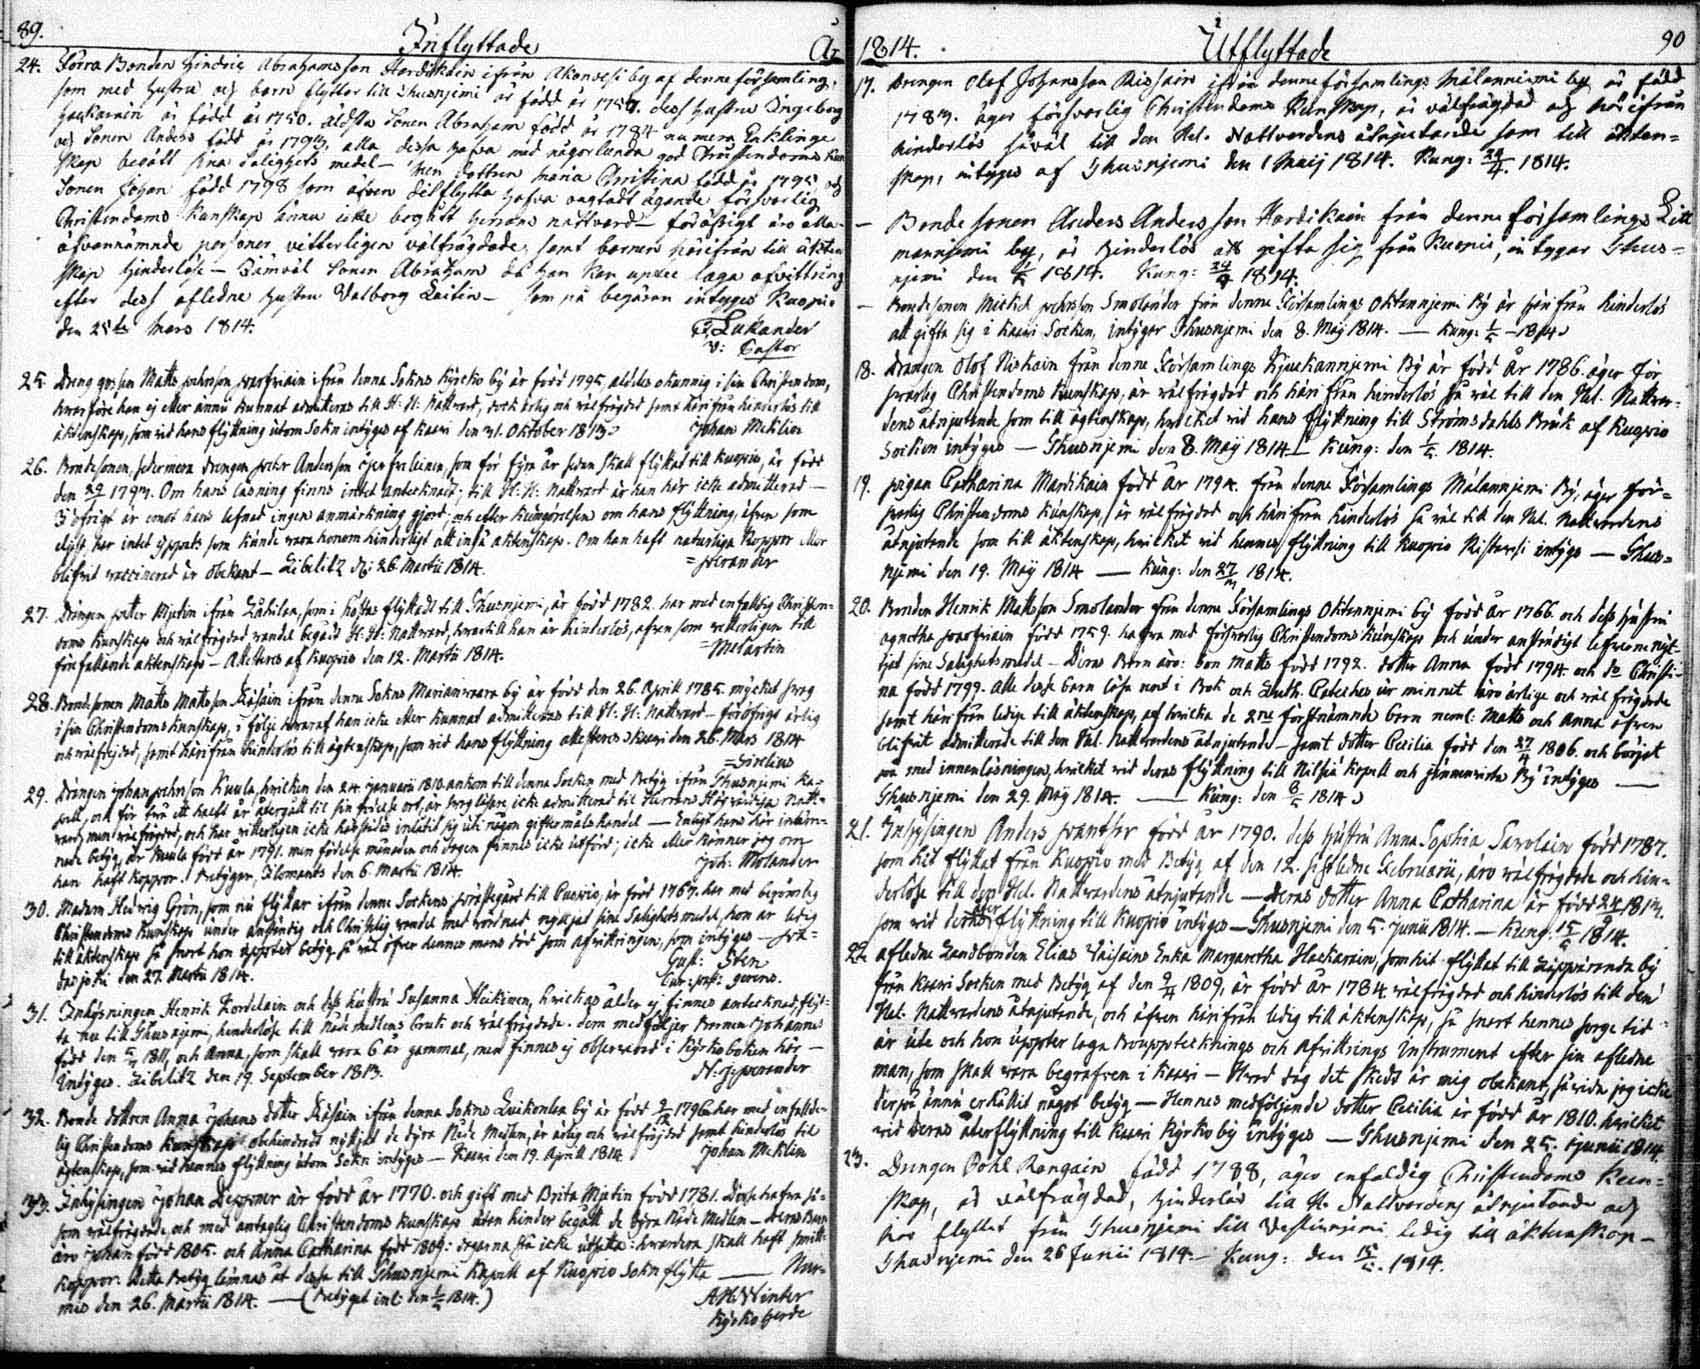 89. Inflyttade År
24. Förra Bonden Hindric Abrahamsson Hardikain ifrån Akonvesi by af denne församling,
som med hustru och barn flytter till Thusnjemi är född år 1757. dess hustru Ingeborg
Hackarain är född år 1750. äldsta Sonen Abraham född år 1784 numera Enkling
och Sonen Anders född år 1794, alla dessa hafva med någorlunda god Christendoms kun
skap begått sina salighets medel — Men dottren Maria Christina född år 1795 och
Sonen Johan född 1798 som äfven ditflytta hafva ägande försvarlig
Christendoms kunskap ännu icke begått herrans nattvard — för öfrigt äro alla
ofvannämnde personer vitterligen välfrägdade, samt barnen härifrån till äkten
skap hinderlöse — Såmväl Sonen Abraham då han kan upte laga afvittring
efter dess aflidne hustru Valborg Laitin — Som på begäran intygas Kuopio
den 25te Mars 1814. Lukander
V: Pastor
25. Dreng gossen Matts ifrån denna Sokns Kyrcko by är född 1795, aldeles okunnig i sin Christendom,
hvarföre han ej eller ännu kunnat admitteras till H. H. Nattvard, dock ärlig och välfrägdad samt härifrån hinderlös till
äktenskap, som vid hans flyttning utom Sokn intygas af Kaavi den 31. Oktober 1813. Johan Meklin
26. Bondesonen, sedermera drengen Petter Andersson som för fyra år sedan skall flyttat till Kuopio, är född
den 29 1793. Om hans läsning finns intet antecknadt; till H. H. Nattvard är han här icke admitterad —
I öfrigt är emot hans lefnad ingen anmärkning gjord; och efter kungörelsen om hans flyttning, efven som
eljest har intet yppats som kunde vara honom hinderligt att ingå äktenskap. Om han haft naturliga Koppor eller
blifvit vaccinerad är obekant — Libelitz d: 26 Martii 1814.
27. Drängen Petter Mjetin ifrån som i höstas flyttade till Thusnjemi, är född 1782. har med enfaldig Christen-
doms kunskap och välfrägdad vandel begådt H. H. Nattvard, hvartill han är hinderlös, äfven som vetterligen till
förefallande äktenskap — Attesteras af Kuopio den 12. Martii 1814. Molartin
28. Bondesonen Matts Mattsson Räsäin ifrån denne Sokns Marianvaara by är född den 26. Aprill 1785. mycket svag
i sin Christendoms kunskap, i följe hvaraf han icke eller kunnat admitteras till H. H. Nattvard — för öfrigt ärlig
och välfrejdad, samt härifrån hinderlös till ägtenskap, som vid hans flyttning attesteras Kaavi den 26. Mars 1814
Sirelius
29. Drängen Johan Johnsson Kuula, hvilken den 24. Januarii 1810. ankom till denna Socken med Betyg ifrån Thusnjemi Ka-
pell, och för ett halft år återgått til sin födelse ort, är svag läsare icke admitterad til Herrans Högvärdiga Natt-
vard, men välfrägdad, och har vitterligen icke härstädes inlåtit sig uti någon giftermåls handel — Enligt hans här inläm-
nade betyg, är Kuula född år 1791. men födelse månaden och dagen finnes icke utförd; icke eller känner jag om
han haft koppor. Betygar, Ilomants den 6. Martii 1814. Joh: Molander
30. Madam Hedvig Grön, som nu flyttar ifrån denne Sockens prästegård till Kuopio, är född 1767. har med berömlig
Christendoms kunskap under anständig och Christelig vandel med vördnad nyttjat sine Salighets medel, hon är ledig
till äktenskap så snart hon upptedt betyg så väl öfver dennes mans död som afvittringen, som intyges — Ida-
densalmi den 27. Martii 1814. Gust: Sten
31. Inhysningen Henrik Kordelain och dess hustru Susanna Heikinen, hvilkas ålder ej finnes antecknad, flyt-
ta nu till Thusnjemi, hinderlöse till Nåde medlens bruk och välfrägdade. dem medföljer Barnen Johannes
född den 1811, och Anna, som skall vara 6 år gammal, men finnes ej observerad i Kyrkoboken här —
Intyges. Libelitz den 19. September 1813.
32. Bonde dottren Anna Johans dotter Räsäin ifrån denna Sokns Luikonlax by är född 1796. har med enfalde-
lig Christendoms kunskap obehindradt nyttjat de dyra Nåde Medlen, är ärlig och välfrägdad samt hinderlös til
ägtenskap, som vid hennes flyttning utom Sokn intyges — Kaavi den 19. Aprill 1814. Johan Meklin
33. Inhysingen Johan Deppner är född år 1770. och gift med Brita Mjetin född 1781. Desse hafva så-
som välfrägdade och med antaglig Christendoms kunskap utan hinder begått de dyra Nåde Medlen — deras Barn
äro Johan född 1805. och Anna Catharina född 1809: dagarna stå icke utsatta: hvardera skall haft smitt-
koppor. Detta Betyg lämnas åt desse till Thusnjemi Kapell af Kuopio Sokn flytta — Nur-
mis den 26. Martii 1814. — (Betyget int: den 1814.) A H Winter
Kyrkoherde
1814. Utflyttade 90
17. Drengen Olof Johansson Rissain ifrån denne församlings Målannjemi by är född
1783. äger försvarlig Christendoms kunskap, är välfrägdad och härifrån
hinderlös såväl till den Hel. Nattvardens åtnjutande som till äkten-
skap, intyges af Thusnjemi den 1 Maij 1814. Kung: 24/4. 1814.
— Bondesonen Anders Andersson Hardikain från denne församlings Litt
mannjemi by, är hinderlös att gifta sig från Kuopio, intygar Thus-
njemi den 1814. Kung: 24/4 1814.
— Bondesonen Mickel Johnsson Smolander från denne Församlings Oktannjemi By är härifrån hinderlös
att gifta sig i Kaavi Socken, intygar Thusnjemi den 8. Maj 1814. — Kung: 1814.
18. Drängen Olof Niskain från denne Församlings Kjuukannjemi By är född År 1786. äger för
svarlig Christendoms kunskap, är välfrägdad och härifrån hinderlös så väl till den Hel. Nattvar-
dens åtnjutande som till ägtenskap, hvilket vid hans flyttning till Strömsdahls Bruk af Kuopio
Socken intyges — Thusnjemi den 8. Maij 1814 — Kung: den 1814.
19. Pigan Catharina Mardikain född år 1794. från denne Församlings Målannjemi By, äger för-
svarlig Christendoms kunskap, är välfrägdad och härifrån hinderlös så väl till den Hel. Nattvardens
åtnjutande som till äktenskap, hvilket vid hennes flyttning till Kuopio Ristavesi intyges — Thus-
njemi den 19. Maij 1814 — Kung: den 1814.
20. Bonden Henrik Mattsson Smolander från denne Församlings Oktannjemi by född år 1766. och dess hustru
Agnetha född 1759. hafva med försvarlig Christendoms kunskap och under anständigt lefverne nyt-
tjat sine Salighetsmedel — Deras Barn äro: son Matts född 1792. dotter Anna född 1794. och do Christi-
na född 1799. alle desse barn läsa rent i Bok och Luth. Cateches ur minnet äro ärlige och väl frägdade
samt härifrån ledige till äktenskap, af hvilka de 2ne förstnämnde barn neml: Matts och Anna äfven
blifvit admitterade till den Hel. Nattvardens åtnjutande — samt dotter Cecilia född den 27/4 1806. och börjat
på med innanläsningen, hvilket vid deras flyttning till Nilsiä Kapell och By intyges —
Thusnjemi den 29. Maij 1814. — Kung: den 1814.
21. Inhysingen Anders född år 1790. dess hustru Anna Sophia Savolain född 1787.
som hit flyttat från Kuopio med Betyg af den 12. sistledne Februarii, äro välfrägdade och hin-
derlöse till den Hel. Nattvardens åtnjutande — deras dotter Anna Catharina är född 1813.
som vid deras åter flyttning till Kuopio intyges — Thusnjemi den 5. Junii 1814. — Kung. 1814.
22. aflidne Landbonden Elias Väisäins Enka Margaretha Hackarain, som hit flyttat till by
från Kaavi Socken med Betyg af den 1809, är född år 1784. välfrägdad och hinderlös till den
Hel. Nattvardens åtnjutande, och äfven härifrån ledig till äktenskap, så snart hennes sorge tid
är ute och hon uppter laga Bouppteckings och Afvittrings Instrument efter sin aflidne
man, som skall vara begrafven i Kaavi — Hvad dag det skedt är mig obekant, så vida jag icke
derpå ännu erhållit något betyg — Hennes medföljande dotter Cecilia är född år 1810. hvilket
vid deras återflyttning till Kaavi Kyrkoby intyges — Thusnjemi den 25. Junii 1814.
23. Drengen Pohl Rangain född 1788, äger enfaldig Christendoms kun-
skap, är välfrägdad, hinderlös till H. Nattvardens åtnjutande och
har flyttat från Thusnjemi till Vestinnjemi ledig till äktenskap —
Thusnjemi den 26 Junii 1814 — Kung: den 1814.